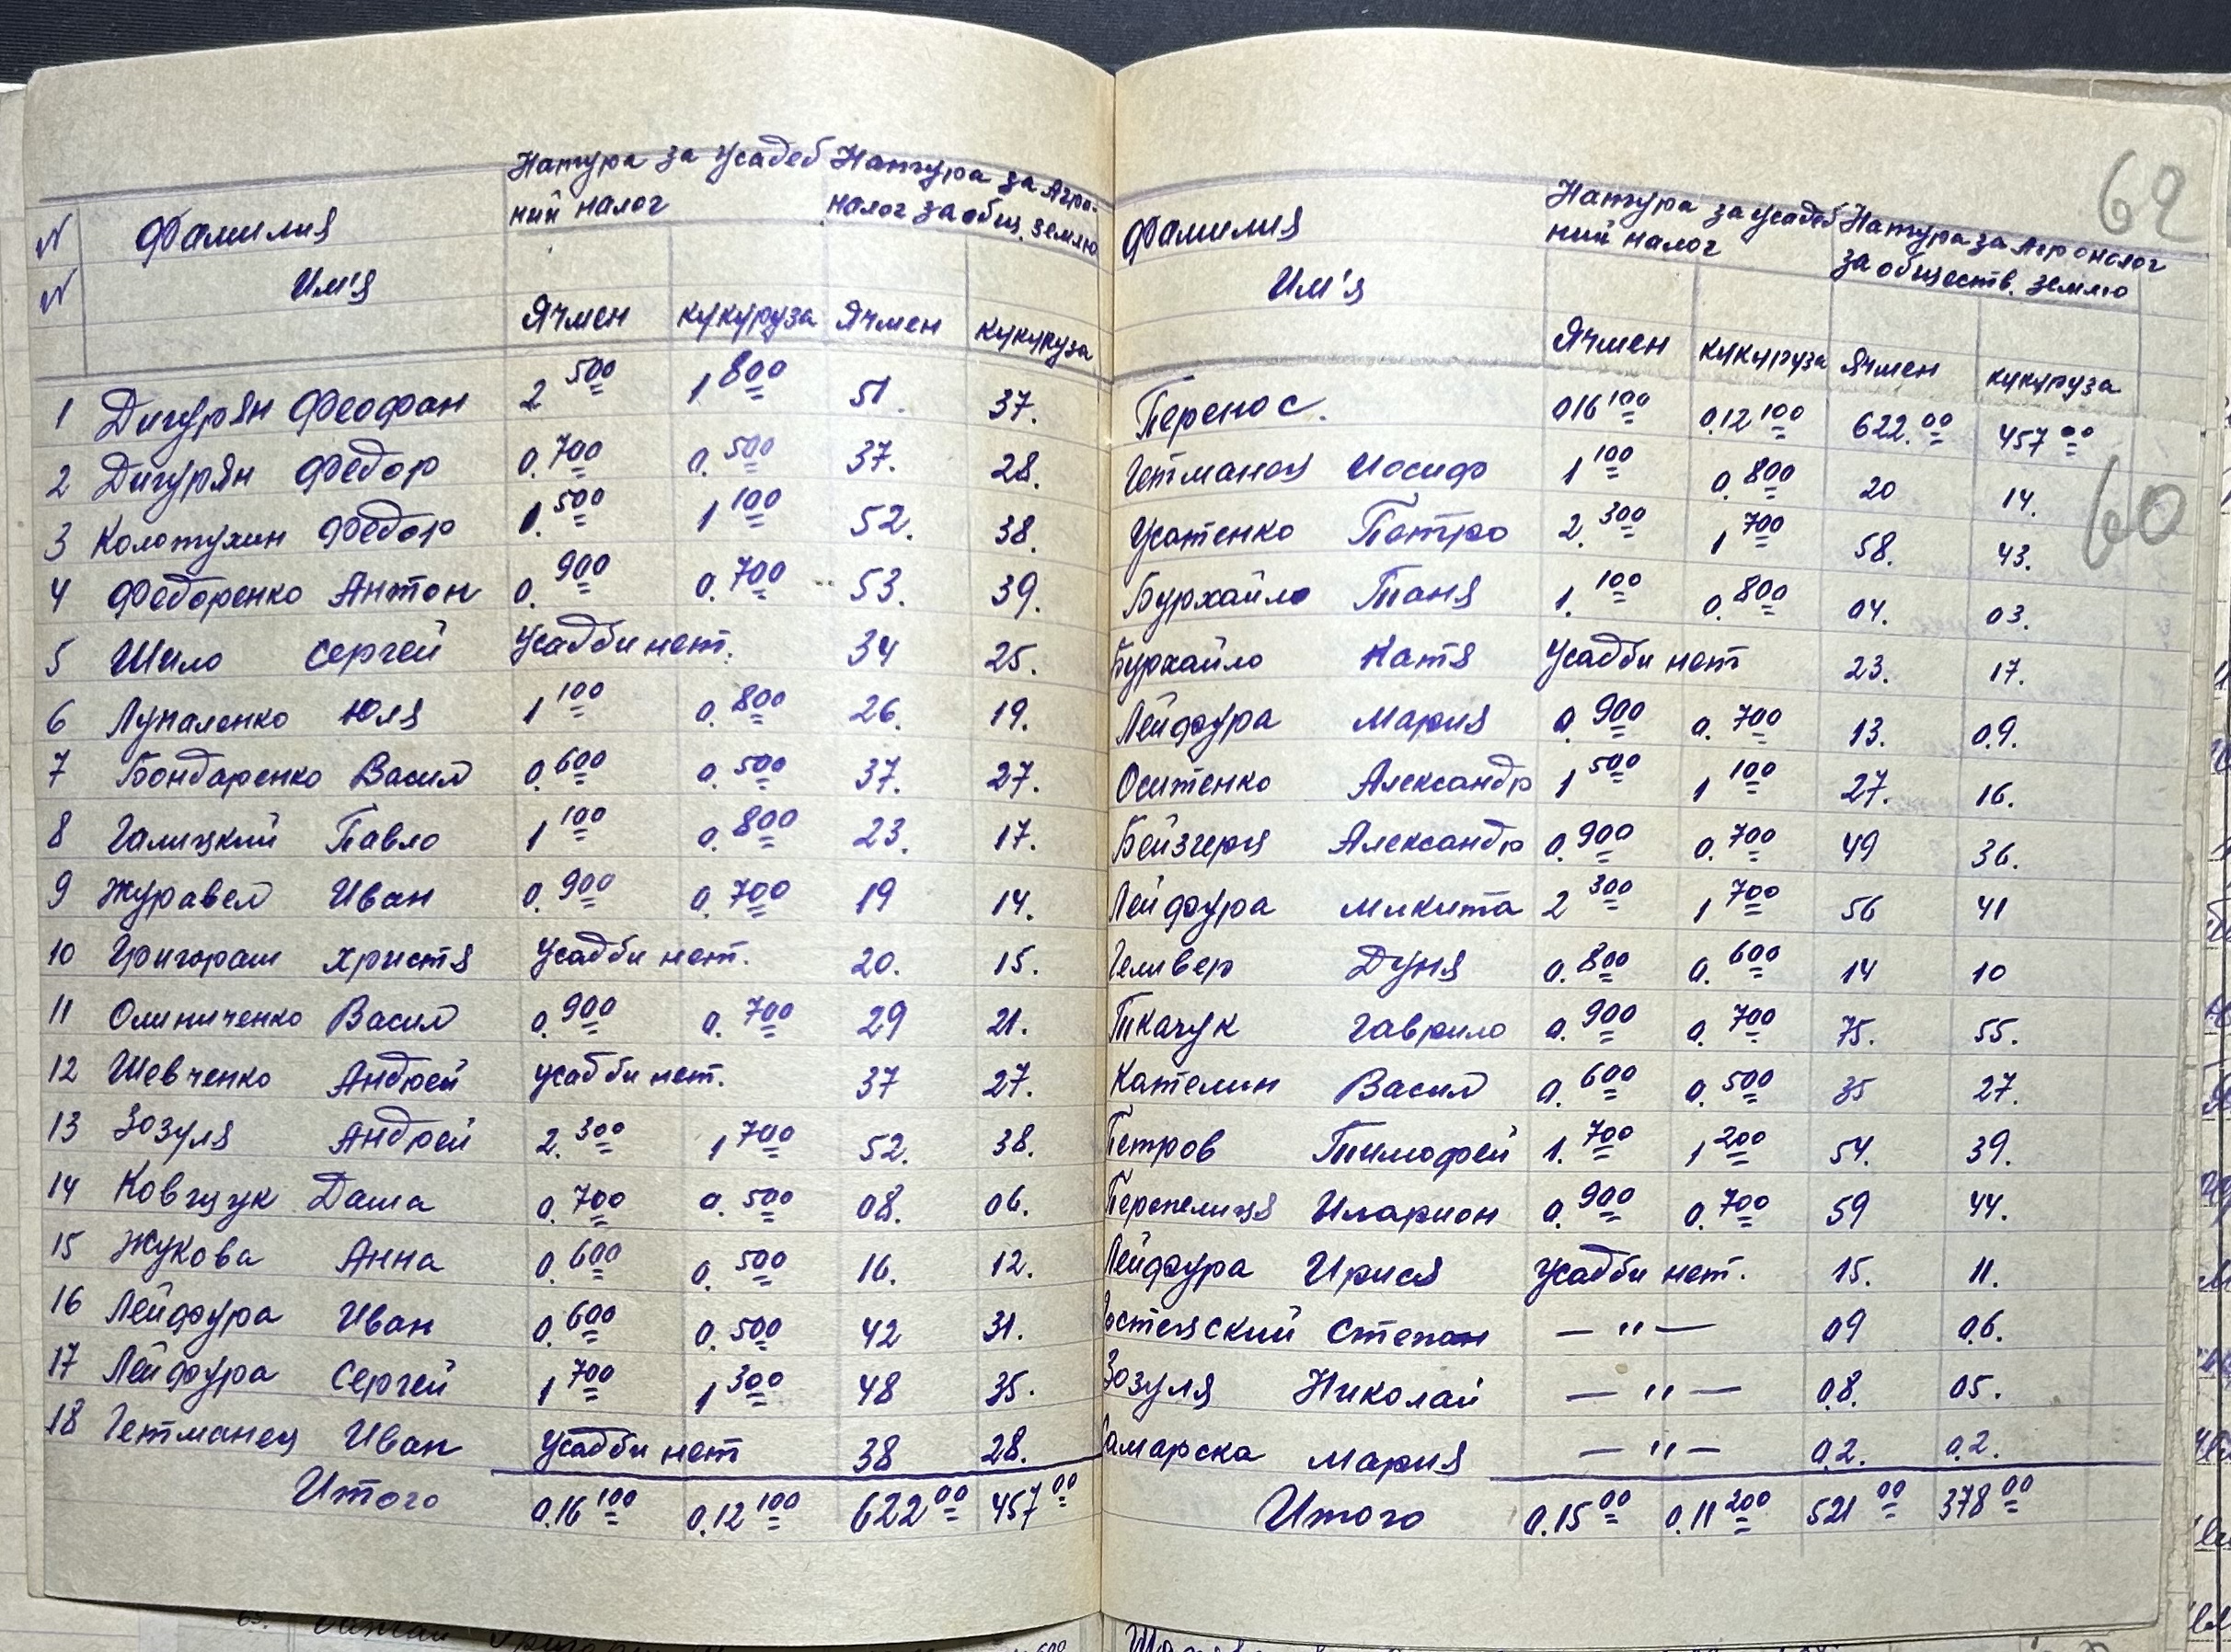 Натура за Усадеб Натура за Агро-
№ Фамилия ний налог налог за общ. землю
№ Им'я
Ячмен кукуруза Ячмен кукуруза
1 Дигурян Феофан 2 500 1 800 51. 37.
2 Дигурян Федор 0.700 0.500 37. 28.
3 Колотухин Федор 1.500 1 100 52. 38.
4 Федоренко Антон 0.900 0.700 53. 39.
5 Шило Сергей Усадби нет. 34 25.
6 Лупаленко Юля 1 100 0.800 26. 19.
7 Бондаренко Васил 0.600 0.500 37. 27.
8 Галицкий Павло 1 100 0.800 23. 17.
9 Журавел Иван 0.900 0.700 19 14.
10 Григораш Христя Усадби нет. 20. 15.
11 Олиниченко Васил 0.900 0.700 29 21.
12 Шевченко Андрей усадби нет. 37 27.
13 Зозуля Андрей 2.300 1 700 52. 38.
14 Ковщук Даша 0.700 0.500 08. 06.
15 Жукова Анна 0.600 0.500 16. 12.
16 Лейфура Иван 0.600 0.500 42 31.
17 Лейфура Сергей 1 700 1 300 48 35.
18 Гетманец Иван Усадби нет 38 28.
Итого 0.16 100 0.12 100 622 00 457 00
62
Фамилия Натура за усадеб Натура за Агроналог
Им'я ний налог за обществ. землю
Ячмен кукуруза Ячмен кукуруза
Перенос. 016 100 0.12 100 622.00 457 00
Гетманец Иосиф 1 100 0.800 20 14.
60
Усатенко Петро 2.300 1 700 58. 43.
Бурхайло Таня 1.100 0.800 04. 03.
Бурхайло Катя Усадби нет 23. 17.
Лейфура Мария 0.900 0.700 13. 0.9.
Оситенко Александр 1 500 1 100 27. 16.
Бейзгерц Александр 0.900 0.700 49 36.
Лейфура Микита 2 300 1 700 56 41
Геливер Дуня 0.800 0.600 14 10
Ткачук Гаврило 0.900 0.700 75. 55.
Кателин Васил 0.600 0.500 35 27.
Петров Тимофей 1.700 1 200 54. 39.
Перепелиця Иларион 0.900 0.700 59 44.
Лейфура Ирися Усадби нет. 15. 11.
Степан — " — 09 0.6.
Зозуля Николай — " — 0.8. 05.
Самарска Мария — " — 0.2. 0.2.
Итого 0.15 00 0.11 200 521 00 378 00